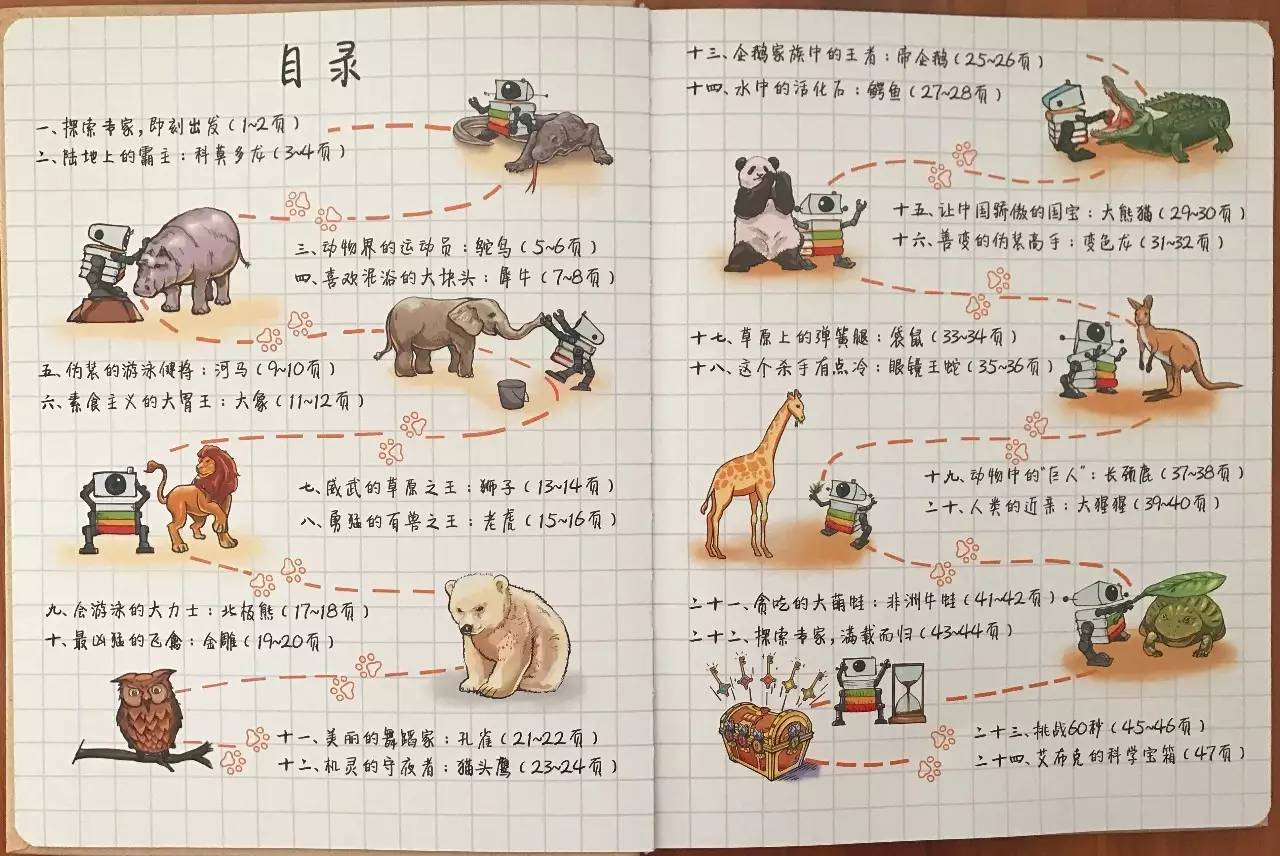 目录
一、探索专家,即刻出发(1~2页)
二、陆地上的霸主:科莫多龙(3~4页)
三、动物界的运动员:鸵鸟(5~6页)
四、喜欢泥浴的大块头:犀牛(7~8页)
五、伪装的游泳健将:河马(9~10页)
六、素食主义的大胃王:大象(11~12页)
七、威武的草原之王:狮子(13~14页)
八、勇猛的百兽之王:老虎(15~16页)
九、会游泳的大力士:北极熊(17~18页)
十、最凶猛的飞禽:金雕(19~20页)
十一、美丽的舞蹈家:孔雀(21~22页)
十二、机灵的守夜者:猫头鹰(23~24页)
十三、企鹅家族中的王者:帝企鹅(25~26页)
十四、水中的活化石:鳄鱼(27~28页)
十五、让中国骄傲的国宝:大熊猫(29~30页)
十六、善变的伪装高手:变色龙(31~32页)
十七、草原上的弹簧腿:袋鼠(33~34页)
十八、这个杀手有点冷:眼镜王蛇(35~36页)
十九、动物中的“巨人”:长颈鹿(37~38页)
二十、人类的近亲:大猩猩(39~40页)
二十一、贪吃的大萌蛙:非洲牛蛙(41~42页)
二十二、探索专家,满载而归(43~44页)
二十三、挑战60秒(45~46页)
二十四、艾布克的科学宝箱(47页)